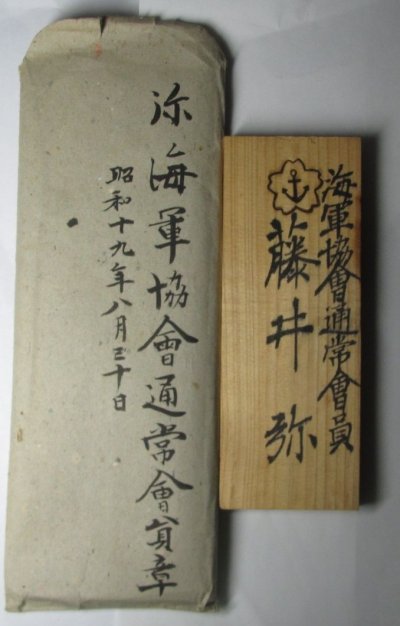 弥海軍協會通常會員章
昭和十九年八月三十日
海軍協會通常會員
藤井弥